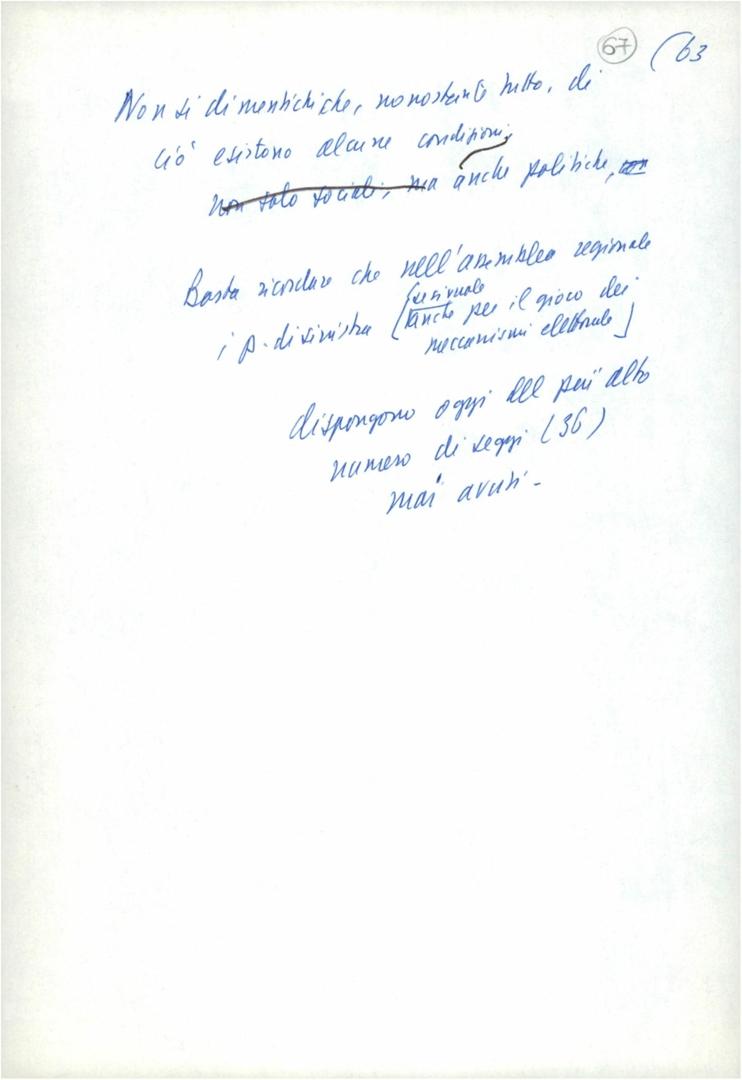 67 (63
Non si dimentichi che, nonostante tutto, di
ciò esistono alcune condizioni,
non solo sociali, ma anche politiche,
Basta ricordare che nell'assemblea regionale
i p. di sinistra [anche per il gioco dei
meccanismi elettorale]
dispongono oggi del più alto
numero di seggi (36)
mai avuti -